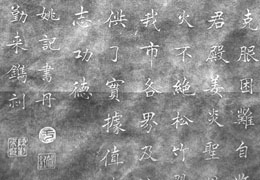 克服困難自
君殿姜炎聖
火不絕松竹
我市各界及
供了實據值
志功德
姚記書丹
勤来鐫刻